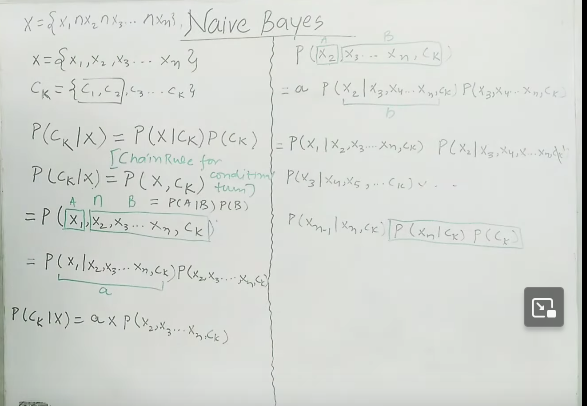 X={x₁∩x₂∩x₃...∩xₙ}. Naive Bayes
X={x₁,x₂,x₃...xₙ}
Cₖ={C₁,C₂,C₃...Cₖ}
P(Cₖ|X)=P(X|Cₖ)P(Cₖ)
[Chain Rule for
P(Cₖ|X)=P(X,Cₖ) condition
A ∩ B = P(A|B) P(B)
=P(x₁,x₂,x₃...xₙ,Cₖ)
=P(x₁|x₂,x₃...xₙ,Cₖ)P(x₂,x₃...xₙ,Cₖ)
a
P(Cₖ|X)=a×P(x₂,x₃...xₙ,Cₖ)
A B
P(x₂,x₃...xₙ,Cₖ)
=a P(x₂|x₃,x₄...xₙ,Cₖ)P(x₃,x₄...xₙ,Cₖ)
b
=P(x₁|x₂,x₃...xₙ,Cₖ) P(x₂|x₃,x₄,...xₙ,Cₖ)
P(x₃|x₄,x₅,...Cₖ)...
P(xₙ₋₁|xₙ,Cₖ) P(xₙ|Cₖ) P(Cₖ)